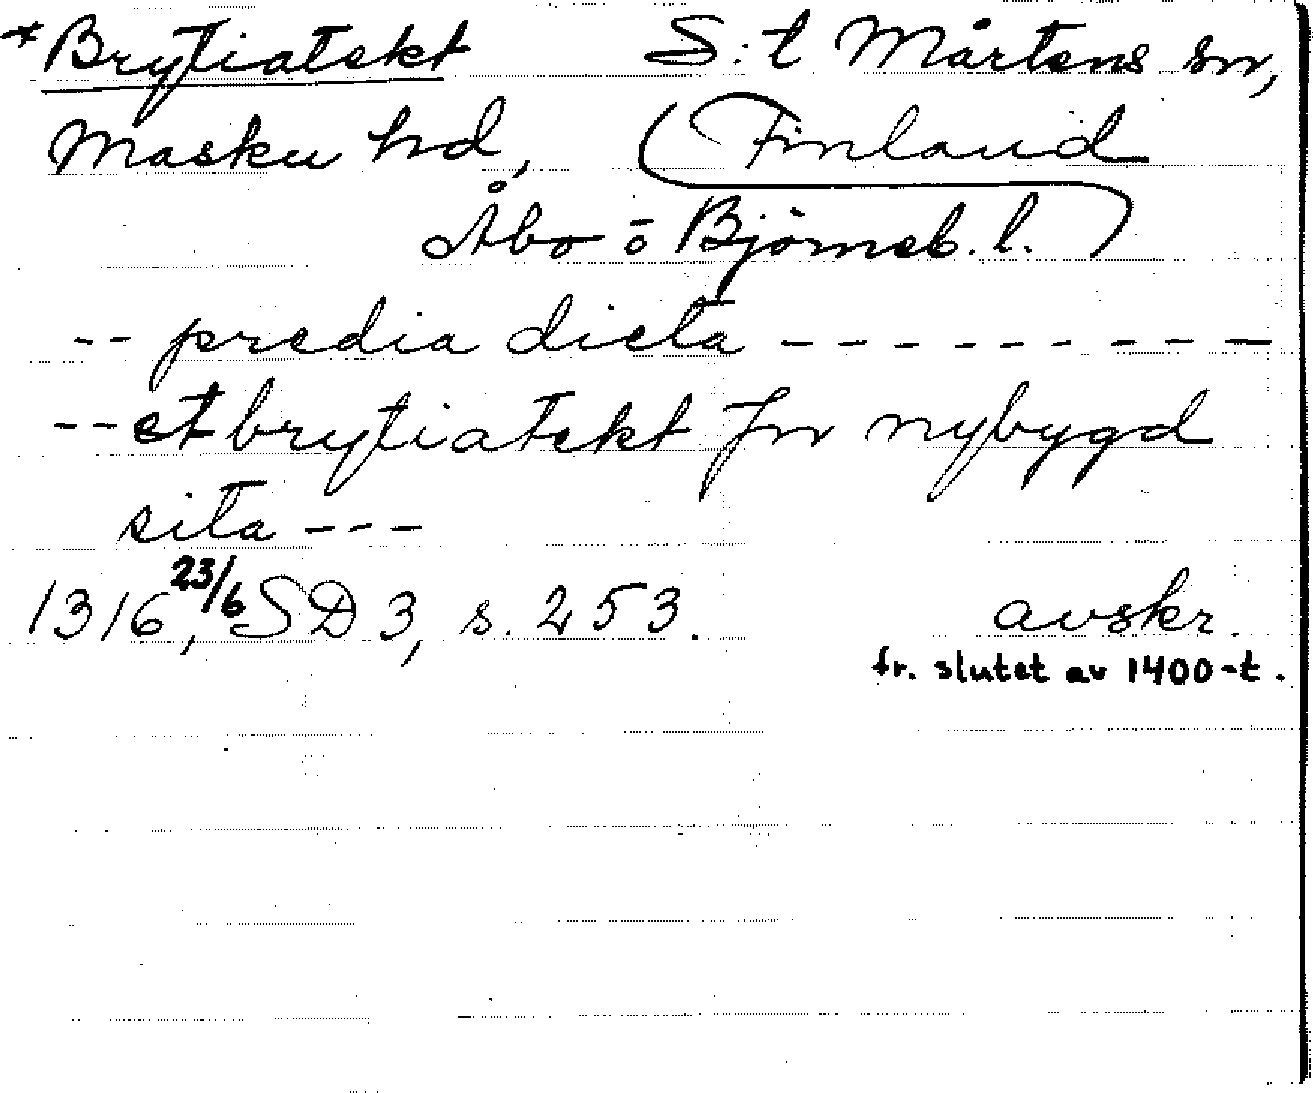 *Brytiatekt S:t Mårtens sn,
Masku hd, (Finland
Åbo o Björneb. l.)
-- predia dicta ---------
-- et brytiatekt in nybygd
sita ---
1316, 23/6 SD 3, s. 253. avskr.
fr. slutet av 1400-t.